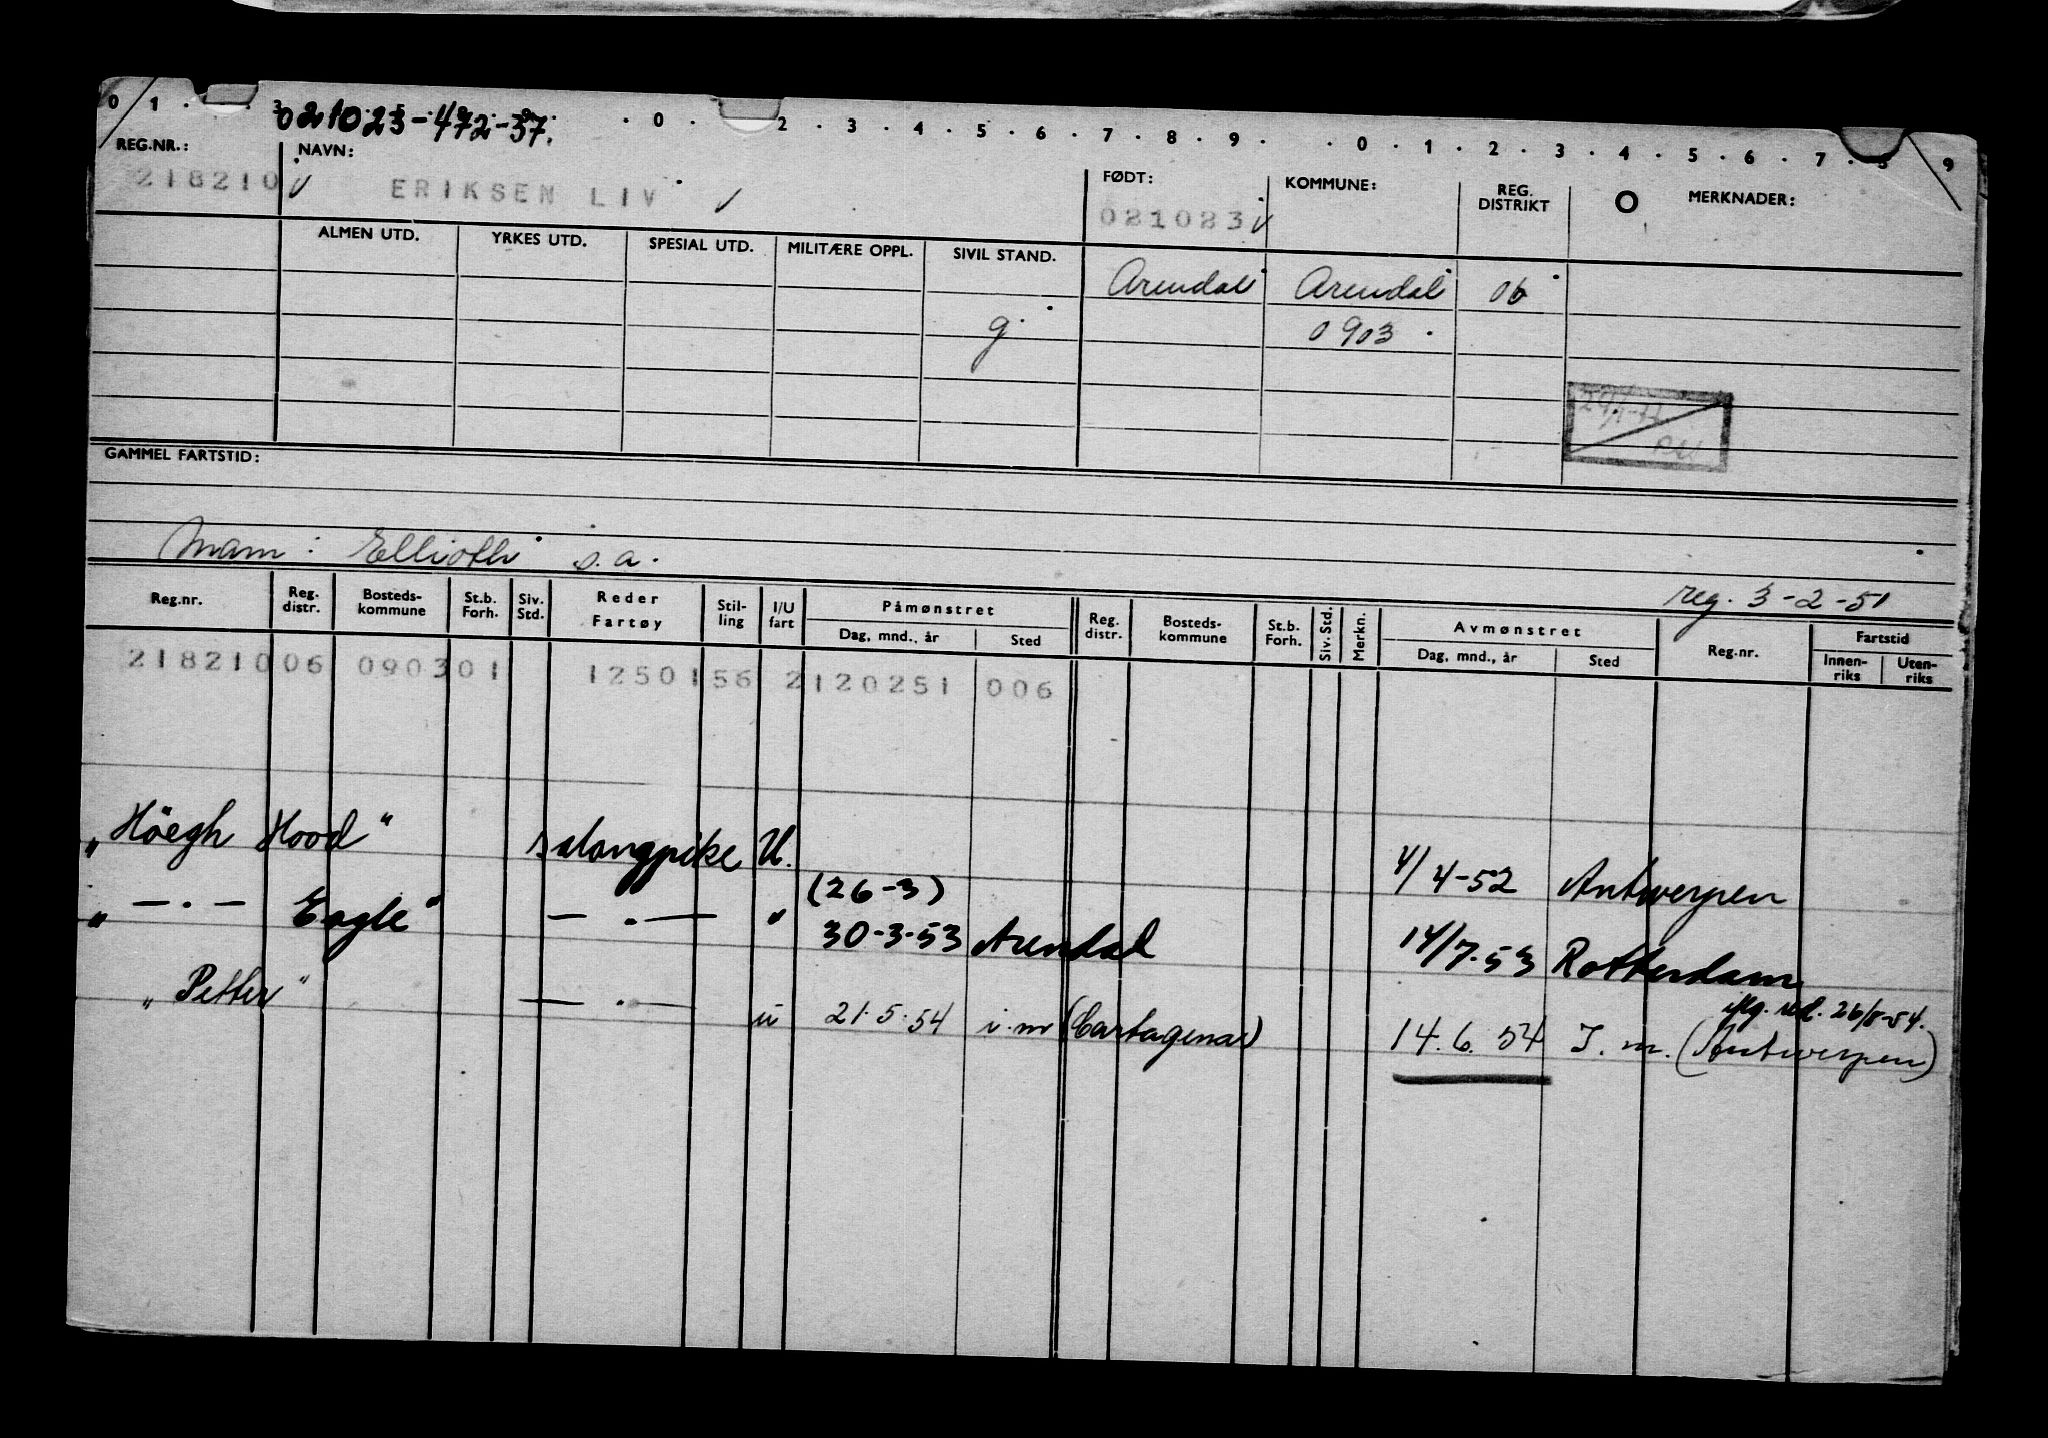 0 1 . . 3 . 5 . . 8 . . 0 . 2 . 3 . 4 . 5 . 6 . 7 . 8 . 9 . . 0 . 1 . 2 . 3 . 4 . 5 . 6 . 7 . 8 9
021023-472-37.
REG.NR.: NAVN: FØDT: KOMMUNE: REG. DISTRIKT O MERKNADER:
218210 ERIKSEN LIV 021023
ALMEN UTD. YRKES UTD. SPESIAL UTD. MILITÆRE OPPL. SIVIL STAND.
Arendal Arendal 06
g 0903
29/1-72
GAMMEL FARTSTID:
Mam: s.a.
reg. 3-2-51
Reg.nr. Reg. distr. Bosteds-kommune St.b. Forh. Siv. Std. Reder Fartøy Stil-ling I/U fart Påmønstret Reg. distr. Bosteds-kommune St.b. Forh. Siv. Std. Merkn. Avmønstret Reg.nr. Fartstid
Dag, mnd., år Sted Dag, mnd., år Sted Innen-riks Uten-riks
218210 06 0903 01 1250 156 2 120251 006
„Höegh Hood" salongpike U. 4/4-52 Antwerpen
„ —.— Eagle" —.— " (26-3) 30-3-53 Arendal 14/7-53 Rotterdam
iflg. red. 26/8-54.
„Petter" —.— u 21.5.54 i.m (Cartagena) 14.6.54 I.m. (Antwerpen)